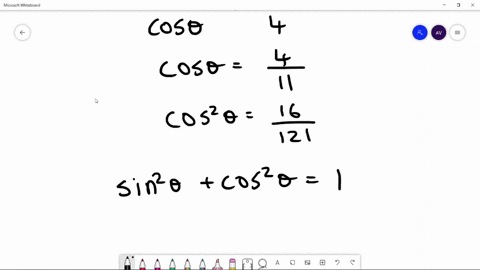 Microsoft Whiteboard
AV
cosθ 4
cosθ = 4/11
cos²θ = 16/121
sin²θ + cos²θ = 1